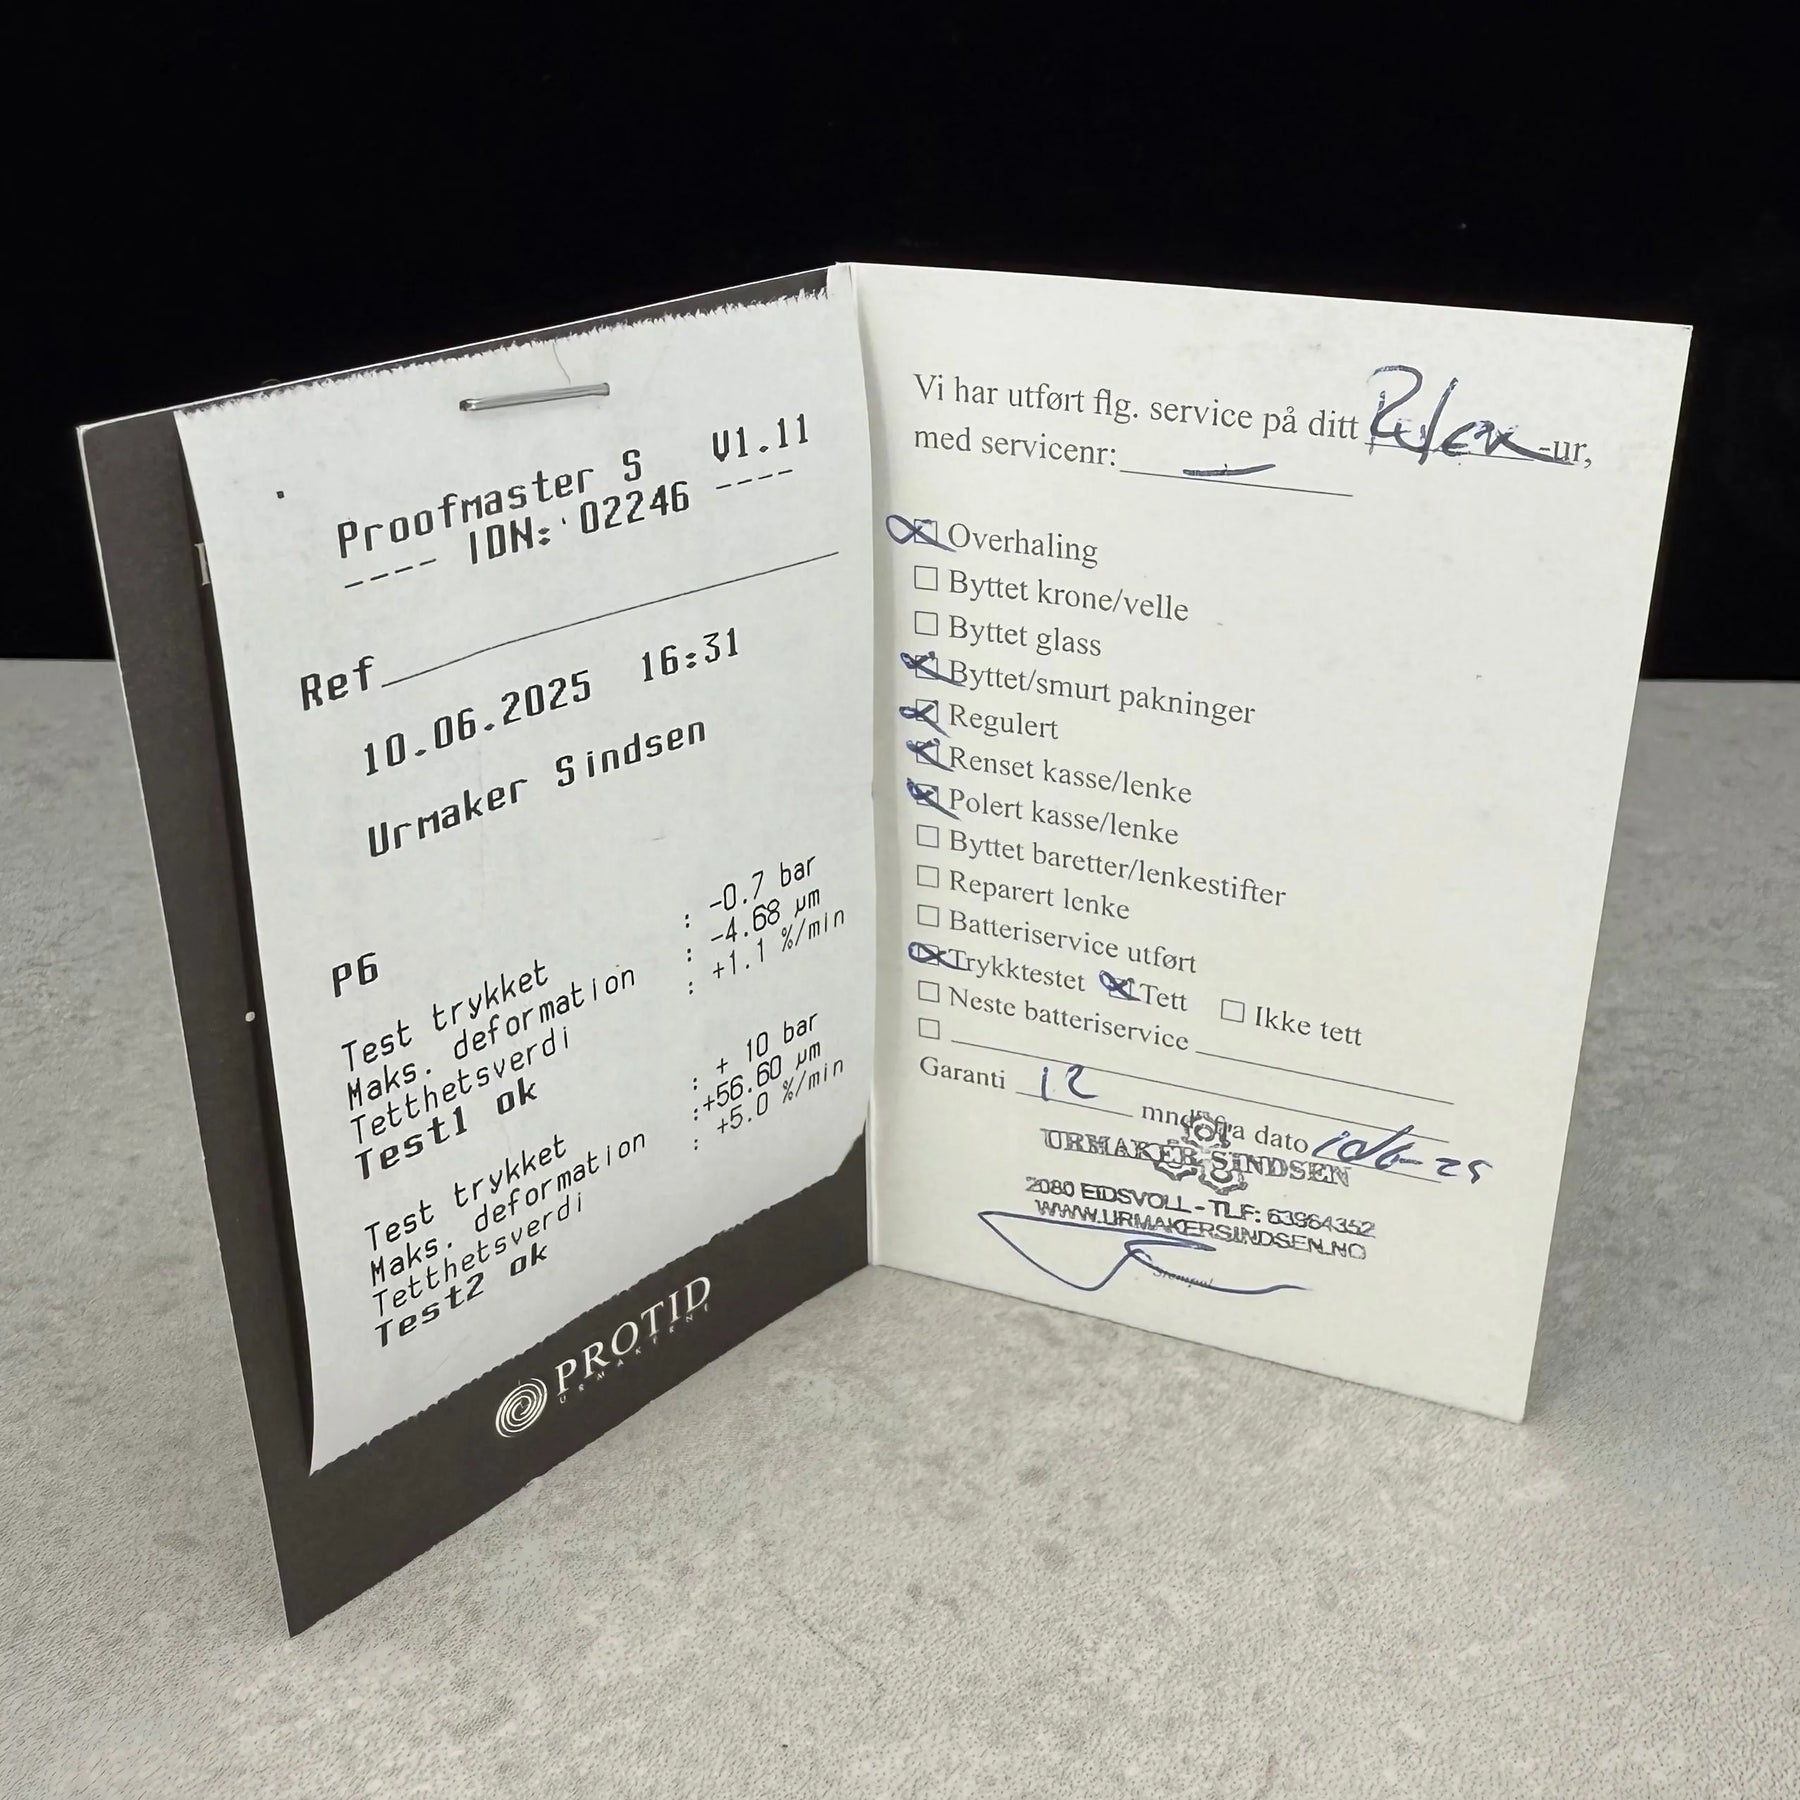 Proofmaster S V1.11
---- IDN: 02246 ----
Ref
10.06.2025 16:31
Urmaker Sindsen
P6
Test trykket : -0.7 bar
Maks. deformation : -4.68 µm
Tetthetsverdi : +1.1 %/min
Test1 ok
Test trykket : + 10 bar
Maks. deformation :+56.60 µm
Tetthetsverdi : +5.0 %/min
Test2 ok
PROTID
URMAKERNE
Vi har utført flg. service på ditt Rolex -ur,
med servicenr: —
Overhaling
Byttet krone/velle
Byttet glass
Byttet/smurt pakninger
Regulert
Renset kasse/lenke
Polert kasse/lenke
Byttet baretter/lenkestifter
Reparert lenke
Batteriservice utført
Trykktestet Tett Ikke tett
Neste batteriservice
Garanti 12 mnd. fra dato 10/6-25
URMAKER SINDSEN
2080 EIDSVOLL - TLF: 63964352
WWW.URMAKERSINDSEN.NO
Stempel